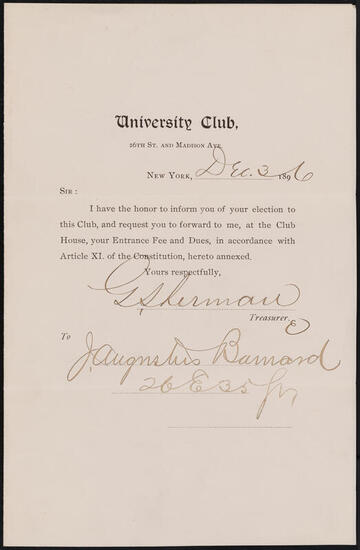 University Club,
26TH ST. AND MADISON AVE.
NEW YORK, Dec. 3 1896
SIR :
I have the honor to inform you of your election to
this Club, and request you to forward to me, at the Club
House, your Entrance Fee and Dues, in accordance with
Article XI. of the Constitution, hereto annexed.
Yours respectfully,
G Sherman
Treasurer.
To
J. Augustus Barnard
26 E 35